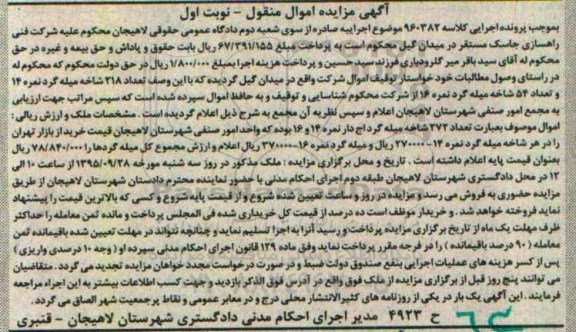 آگهی مزایده اموال منقول - نوبت اول
بموجب پرونده اجرایی کلاسه ۹۶۰۳۸۲ موضوع اجراییه صادره از سوی شعبه دوم دادگاه عمومی حقوقی لاهیجان محکوم علیه شرکت فنی
راهسازی جاسک مستقر در میدان گیل محکوم است به پرداخت مبلغ ۶۷/۳۹۱/۱۵۵ ریال بابت حقوق و پاداش و حق بیمه و غیره در حق
محکوم له آقای سید باقر میر گلرودباری فرزند سید حسین و پرداخت هزینه اجرا بمبلغ ۱/۸۰۰/۰۰۰ ریال در حق دولت محکوم که محکوم له
در راستای وصول مطالبات خود خواستار توقیف اموال شرکت واقع در میدان گیل گردیده که با این وصف تعداد ۲۱۸ شاخه میله گرد نمره ۱۴
و تعداد ۵۴ شاخه میله گرد نمره ۱۶ از شرکت محکوم شناسایی و توقیف و به حافظ اموال سپرده شده است که سپس مراتب جهت ارزیابی
به مجمع امور صنفی شهرستان لاهیجان اعلام و سپس نظریه آن مجمع به شرح ذیل اعلام گردیده است . مشخصات ملک و ارزش ریالی :
اموال موصوف بعبارت تعداد ۲۷۲ شاخه میله گرد آج دار نمره ۱۴ و ۱۶ بوده که واحد امور صنفی شهرستان لاهیجان قیمت خرید از بازار تهران
را در هر شاخه میله گرد نمره ۱۴ - ۲۷۰۰۰۰ ریال و میله گرد نمره ۱۶ - ۳۷۰۰۰۰ ریال اعلام و ارزش مجموع کل میله گردها را ۷۸/۸۴۰/۰۰۰ ریال
بعنوان قیمت پایه اعلام داشته است . تاریخ و محل برگزاری مزایده : ملک مذکور در روز سه شنبه مورخه ۱۳۹۵/۰۹/۲۸ از ساعت ۱۰ الی
۱۲ در محل دادگستری شهرستان لاهیجان طبقه دوم اجرای احکام مدنی با حضور نماینده محترم دادستان شهرستان لاهیجان از طریق
مزایده حضوری به فروش می رسد و مزایده در روز و ساعت تعیین شده شروع و از قیمت پایه شروع و کسی که بالاترین قیمت را پیشنهاد
نماید فروخته خواهد شد . و خریدار موظف است ده درصد از قیمت کل خریداری شده فی المجلس پرداخت و مانده ثمن معامله را حداکثر
ظرف مهلت یک ماه از تاریخ برگزاری مزایده پرداخت و رسید آنرا به اجرا تسلیم نماید و چنانچه نتواند در مهلت تعیین شده باقیمانده ثمن
معامله ( ۹۰ درصد باقیمانده ) را در فرجه مقرر پرداخت نماید وفق ماده ۱۲۹ قانون اجرای احکام مدنی سپرده او ( وجه ۱۰ درصدی واریزی )
پس از کسر هزینه های عملیات اجرایی بنفع صندوق دولت ضبط و در صورت درخواست مجدد خواهان مزایده تجدید می گردد . متقاضیان
می توانند پنج روز قبل از برگزاری مزایده از ملک فوق واقع در آدرس فوق الذکر بازدید و جهت کسب اطلاعات بیشتر به این اجراء مراجعه
فرمایند . این آگهی یک بار در یکی از روزنامه های کثیرالانتشار محلی درج و در معابر عمومی و نقاط پرجمعیت شهر الصاق می گردد .
ح ۴۹۲۳ مدیر اجرای احکام مدنی دادگستری شهرستان لاهیجان - قنبری